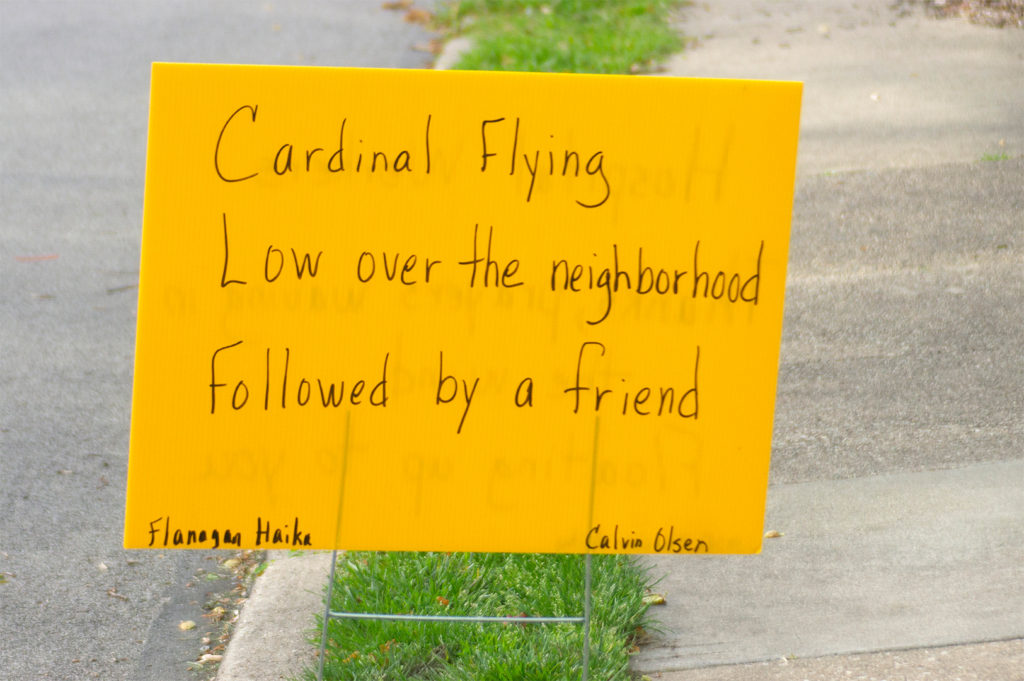 Cardinal Flying
Low over the neighborhood
Followed by a friend
Flanagan Haika
Calvin Olsen